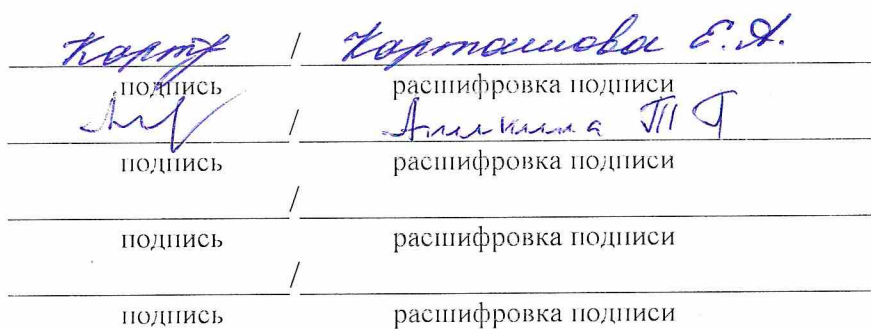 Карту / Карташова Е.А.
подпись расшифровка подписи
/ Аликина Т Г
подпись расшифровка подписи
/
подпись расшифровка подписи
/
подпись расшифровка подписи